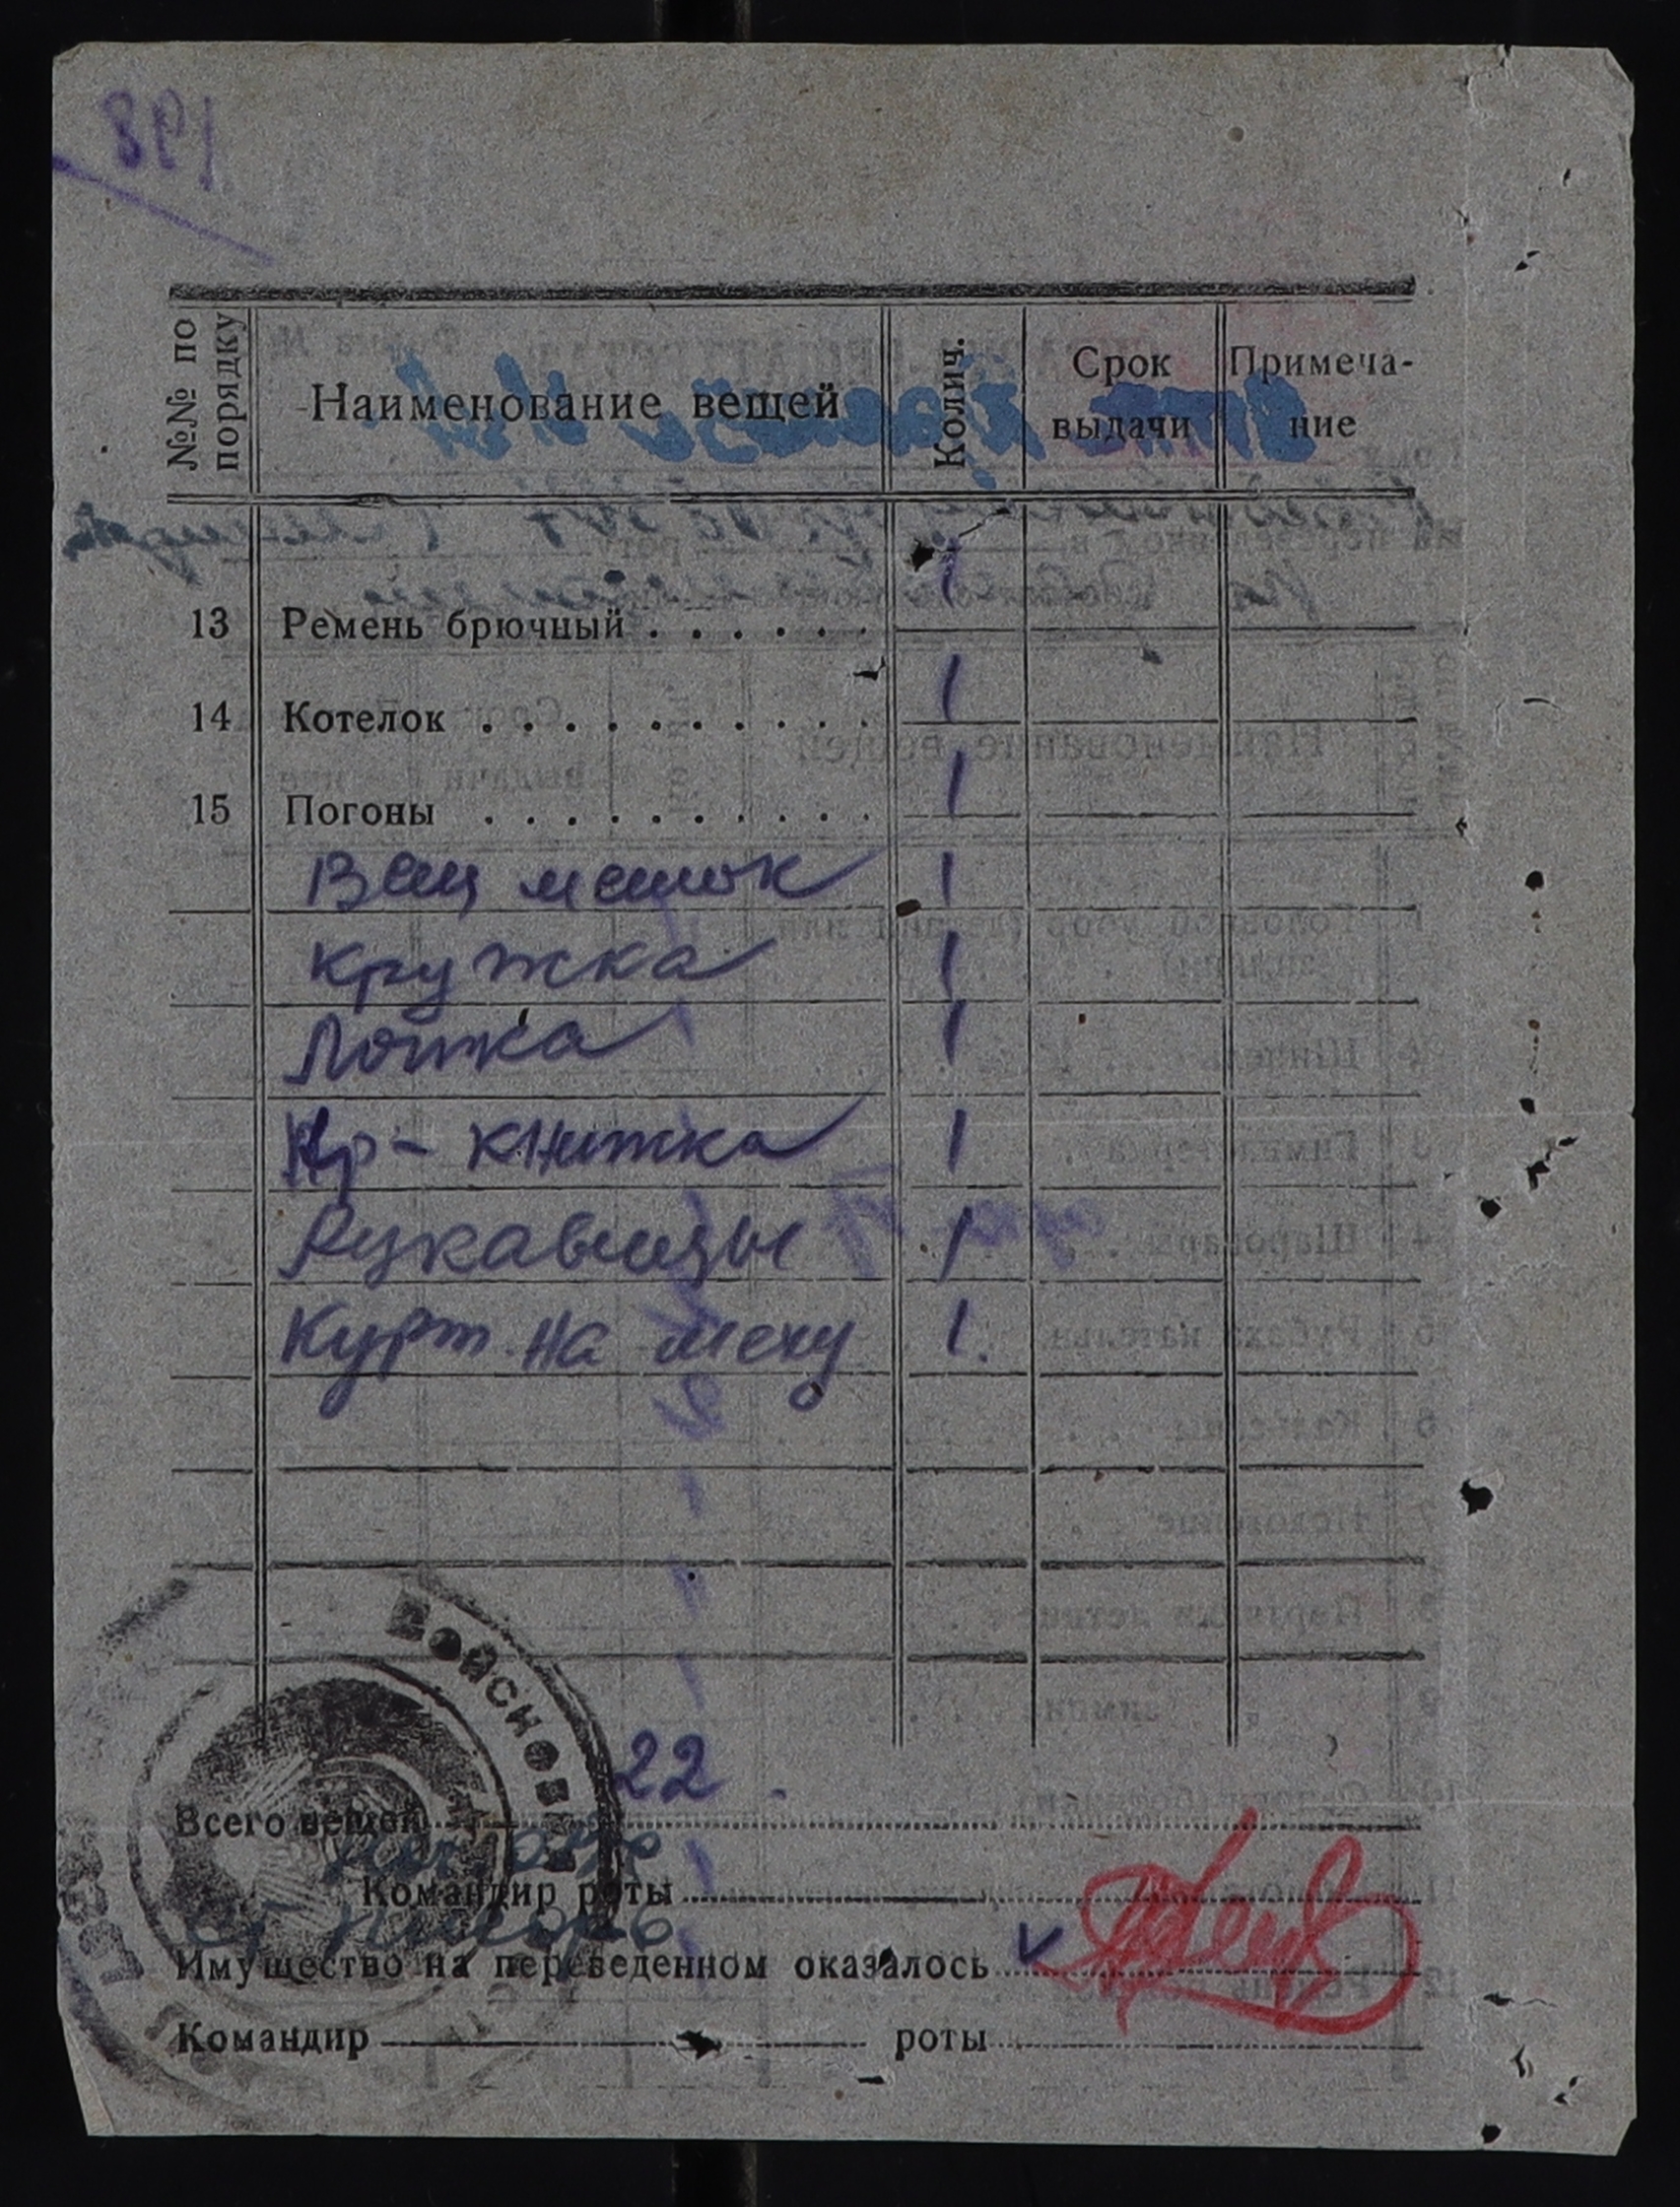 №№ по порядку | Наименование вещей | Колич. | Срок выдачи | Примеча-ние
13 Ремень брючный . . . . . . 1
14 Котелок . . . . . . . . . . 1
15 Погоны . . . . . . . . . . 1
Вещ мешок 1
Кружка 1
Ложка 1
Кр - книжка 1
Рукавицы 1
Курт. на меху 1.
Всего вещей 22
Командир роты
Имущество на переведенном оказалось
Командир роты
Войсков